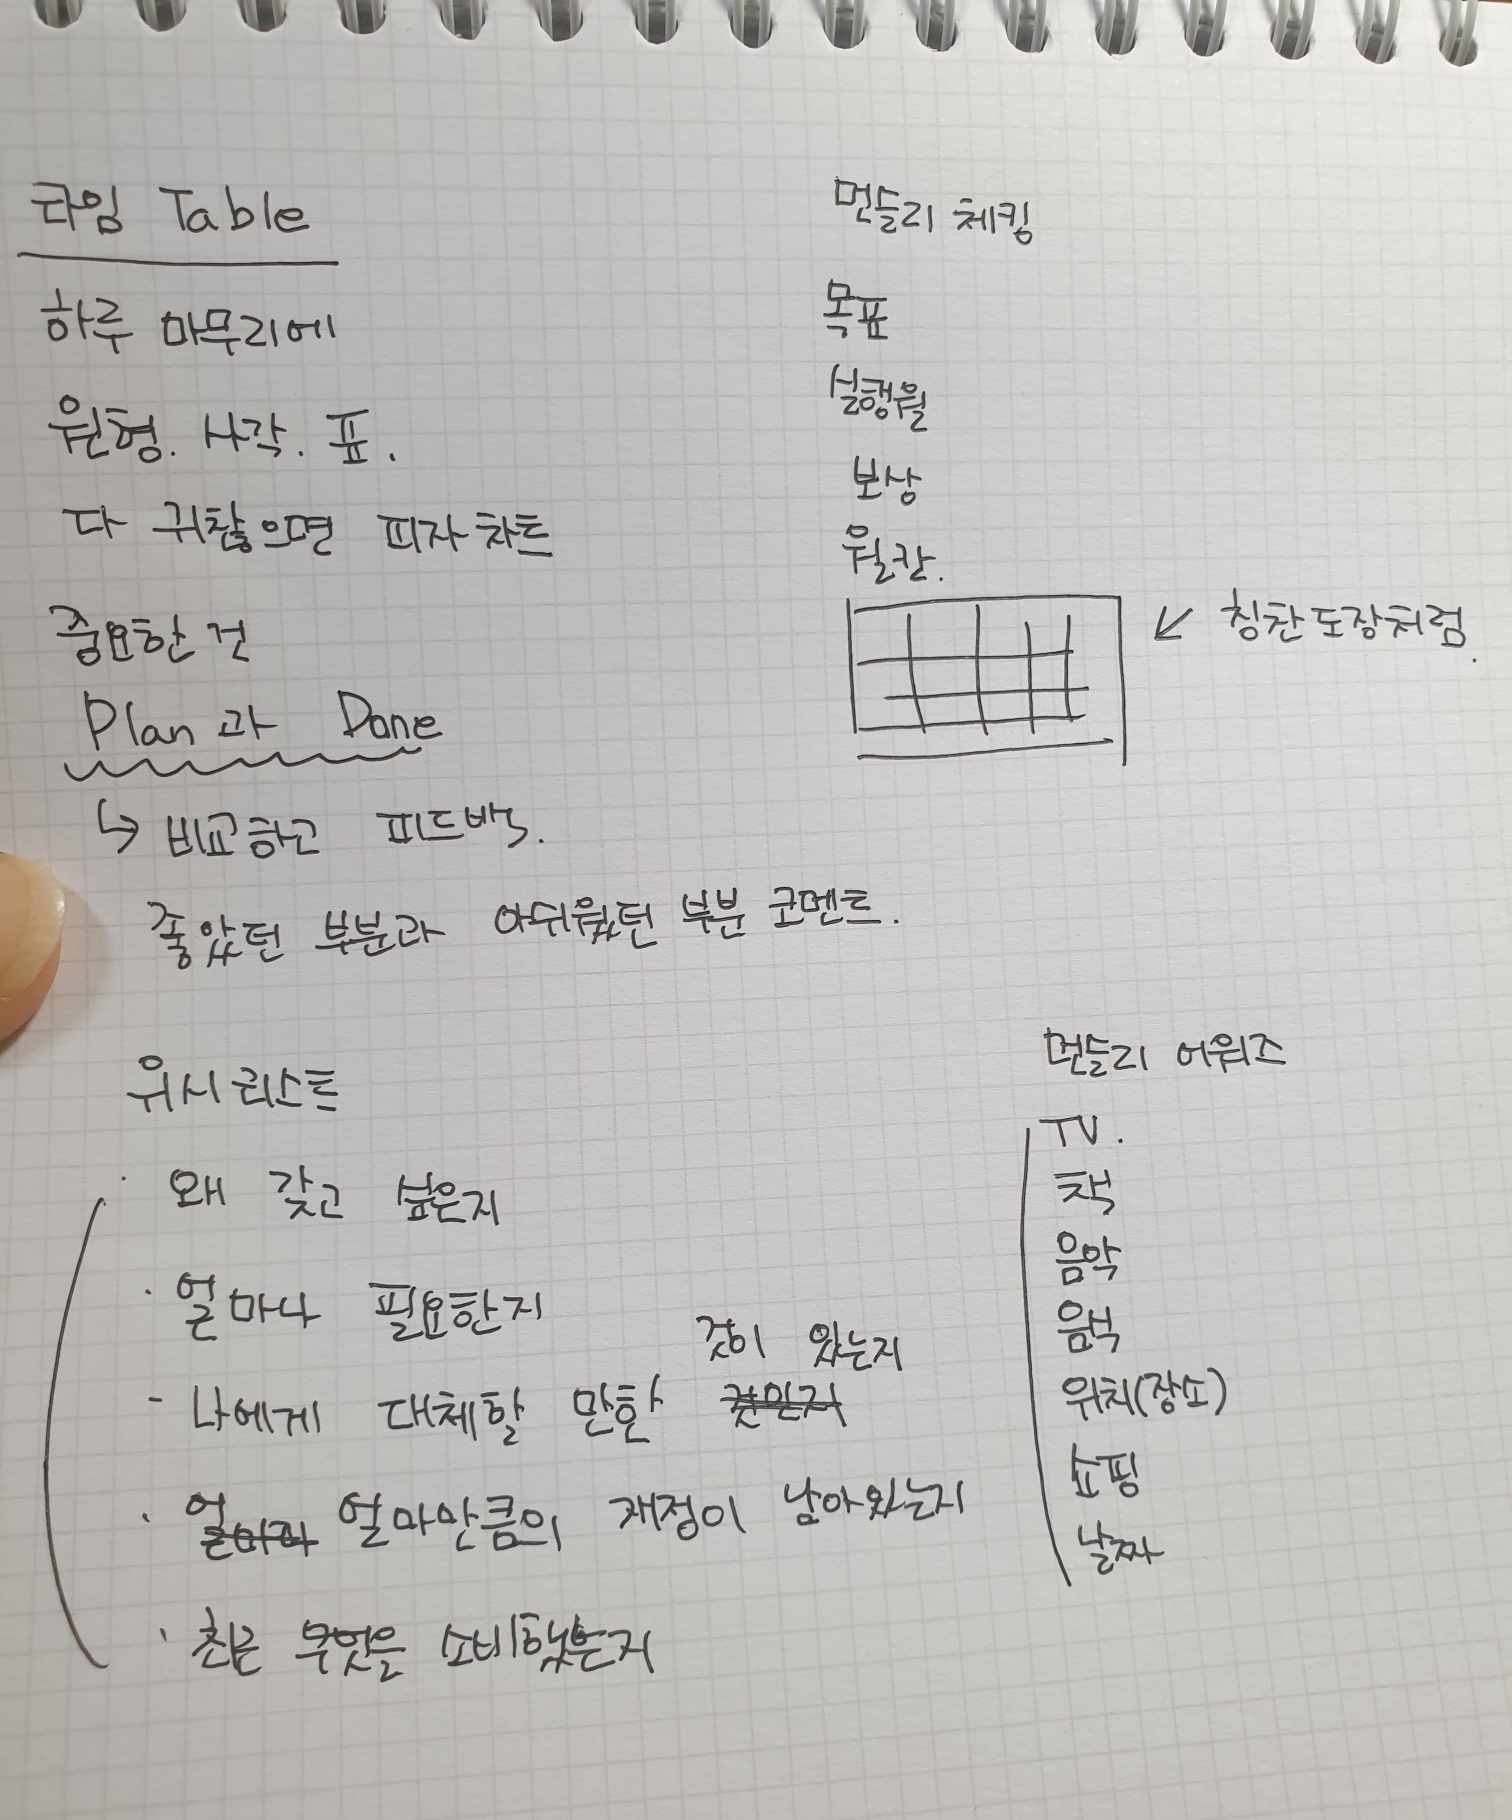 타임 Table
하루 마무리에
원형. 사각. 표.
다 귀찮으면 피자차트
중요한 건
Plan과 Done
↳ 비교하고 피드백.
좋았던 부분과 아쉬웠던 부분 코멘트.
먼들리 체킹
목표
실행월
보상
월칸.
↙ 칭찬도장처럼.
위시리스트
· 왜 갖고 싶은지
· 얼마나 필요한지
것이 있는지
- 나에게 대체할 만한
· 얼마만큼의 재정이 남아있는지
· 최근 무엇을 소비했는지
먼들리 어워즈
TV.
책
음악
음식
위치(장소)
쇼핑
날짜